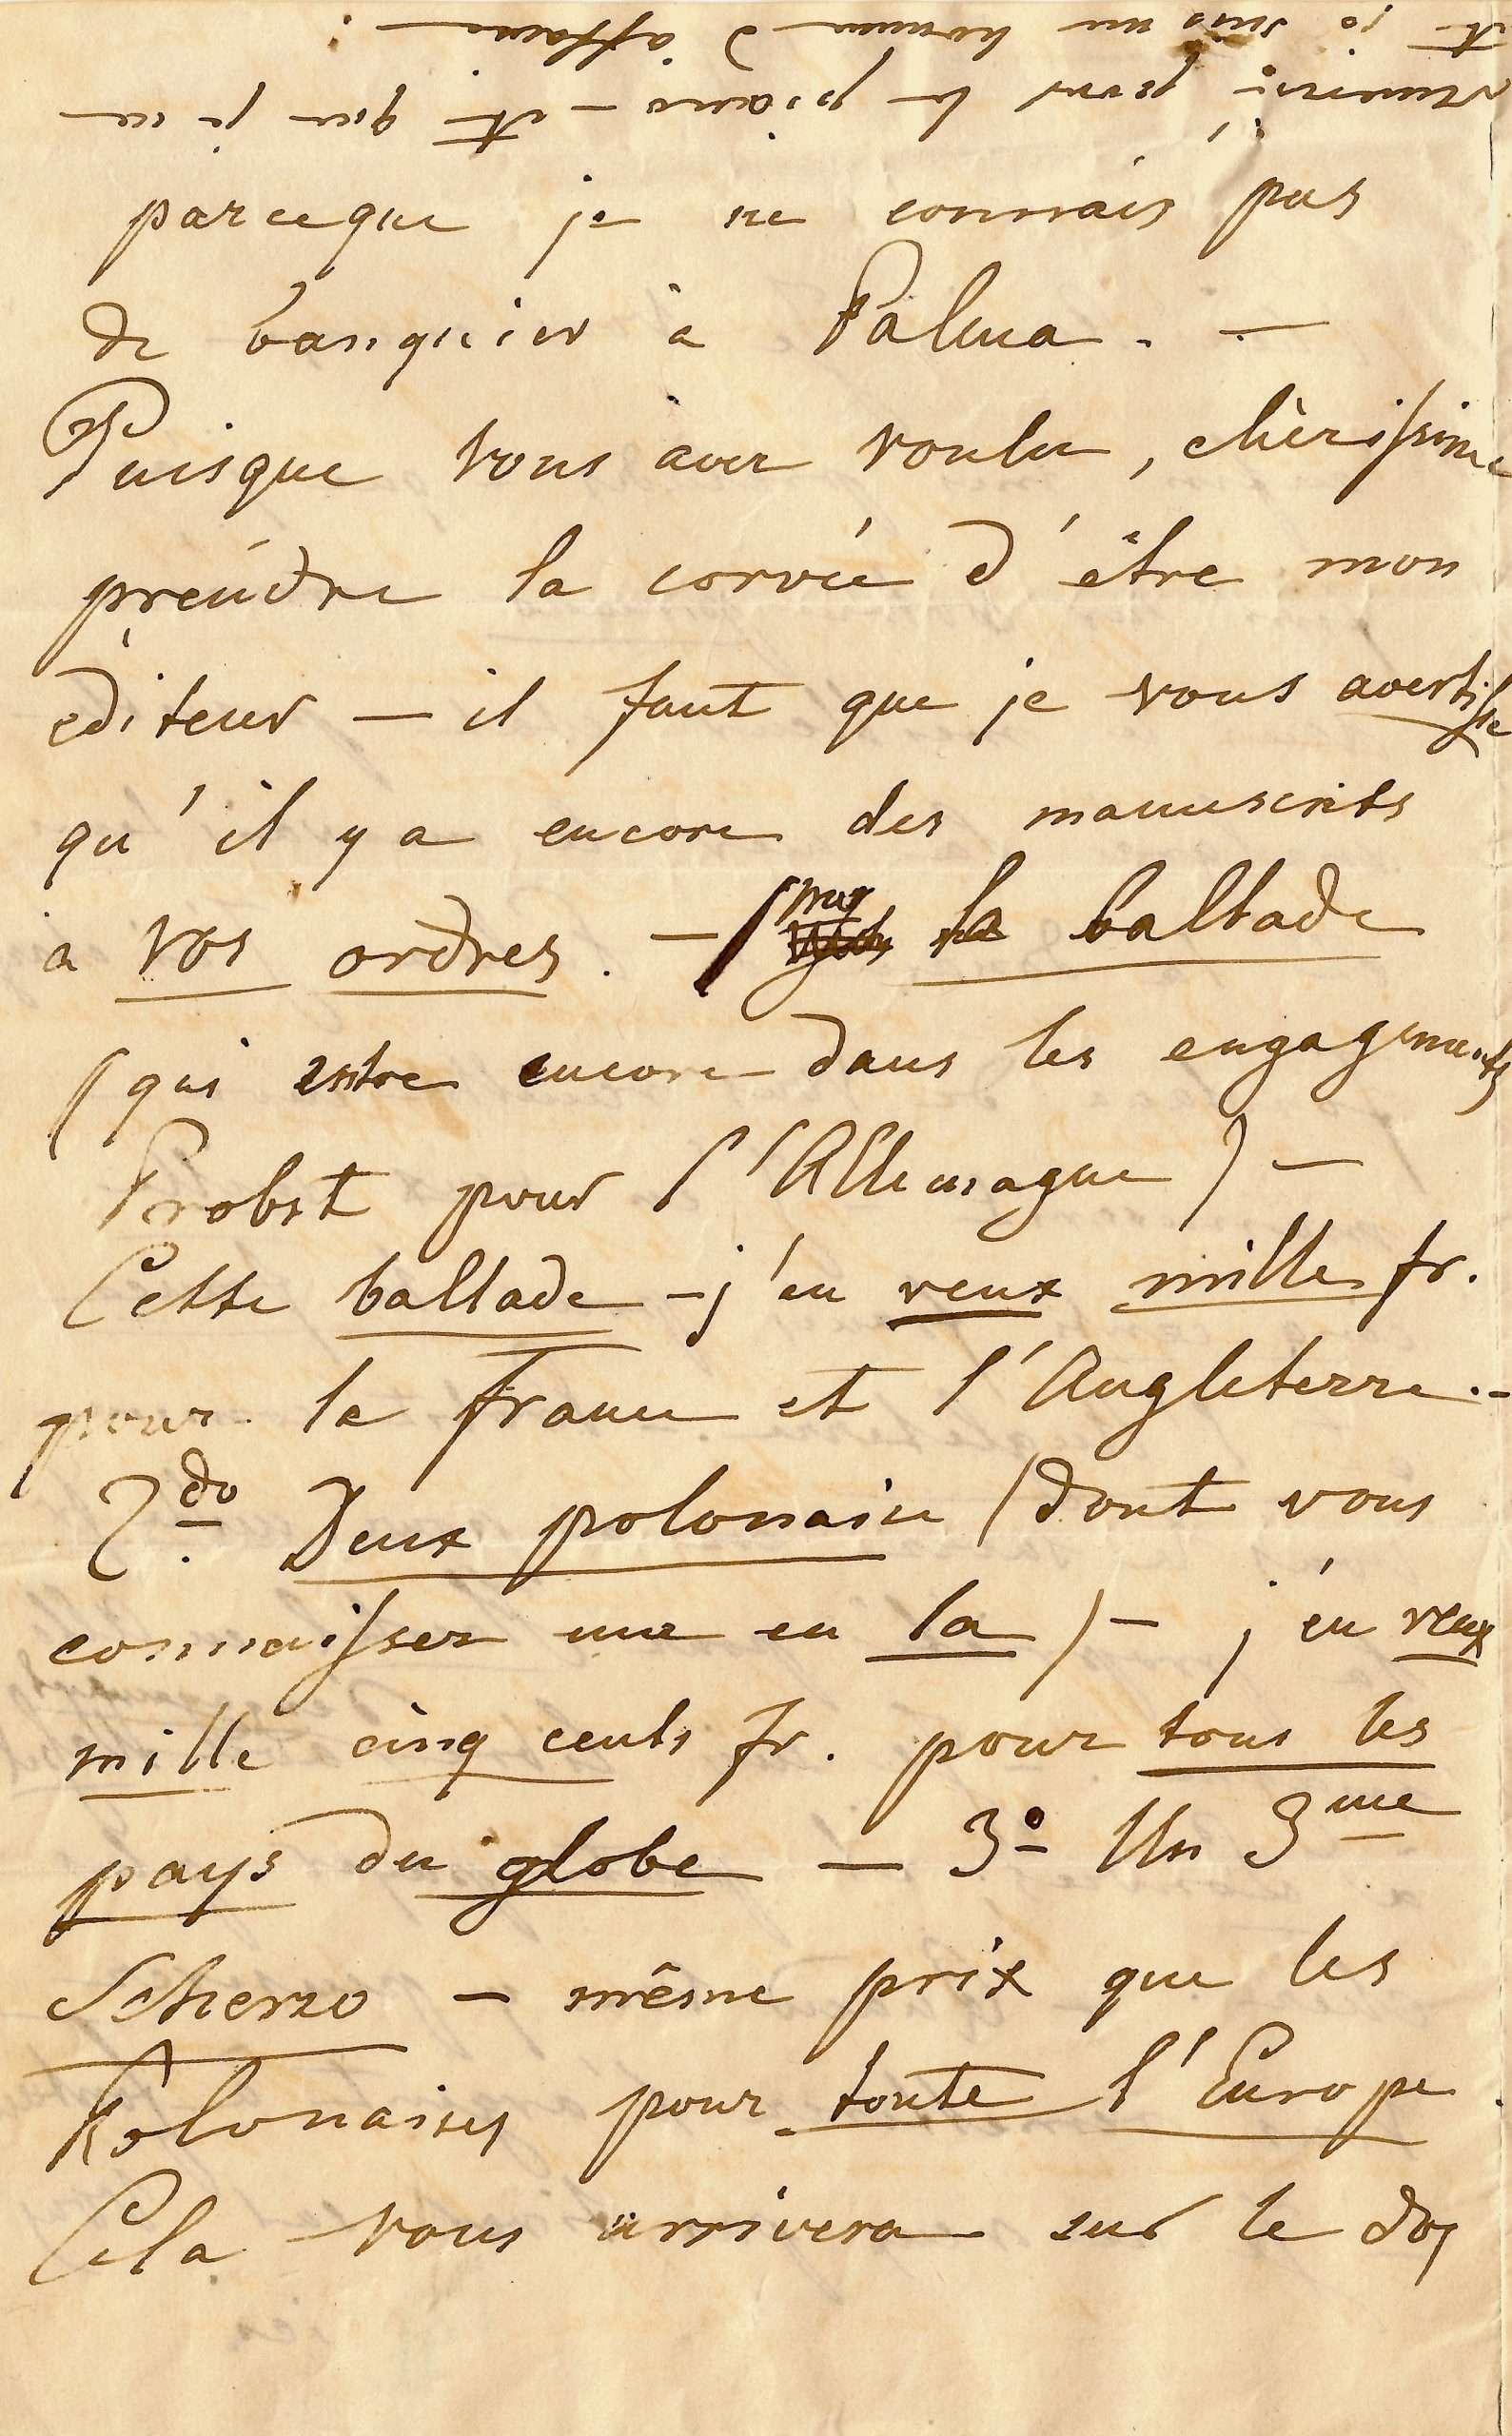 pour le piano – et que je
et je suis un homme d'affaires – :
parceque je ne connais pas
de banquier à Palma. —
Puisque vous avez voulu, chèrissime
prendre la corvée d'être mon
éditeur — il faut que je vous avertisse
qu'il y a encore des manuscrits
à vos ordres. — 1 la ballade
(qui entre encore dans les engagements
Probst pour l'Allemagne) —
Cette ballade – j'en veux mille fr.
pour la france et l'Angleterre. –
2do. Deux polonaises (dont vous
connaissez une en la) – j'en veux
mille cinq cents fr. pour tous les
pays du globe — 3o Un 3me
Scherzo – même prix que les
Polonaises pour toute l'Europe.
Cela vous arrivera sur le dos